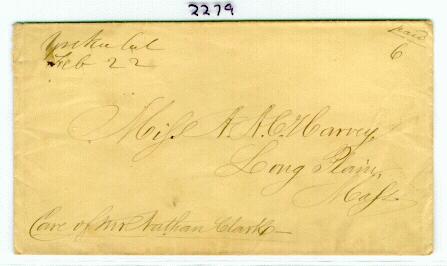 2279
Yreka Cal
Feb 22
paid
6
Miss A. A. C. Harvey
Long Plain,
Mass
Care of Mr Nathan Clark